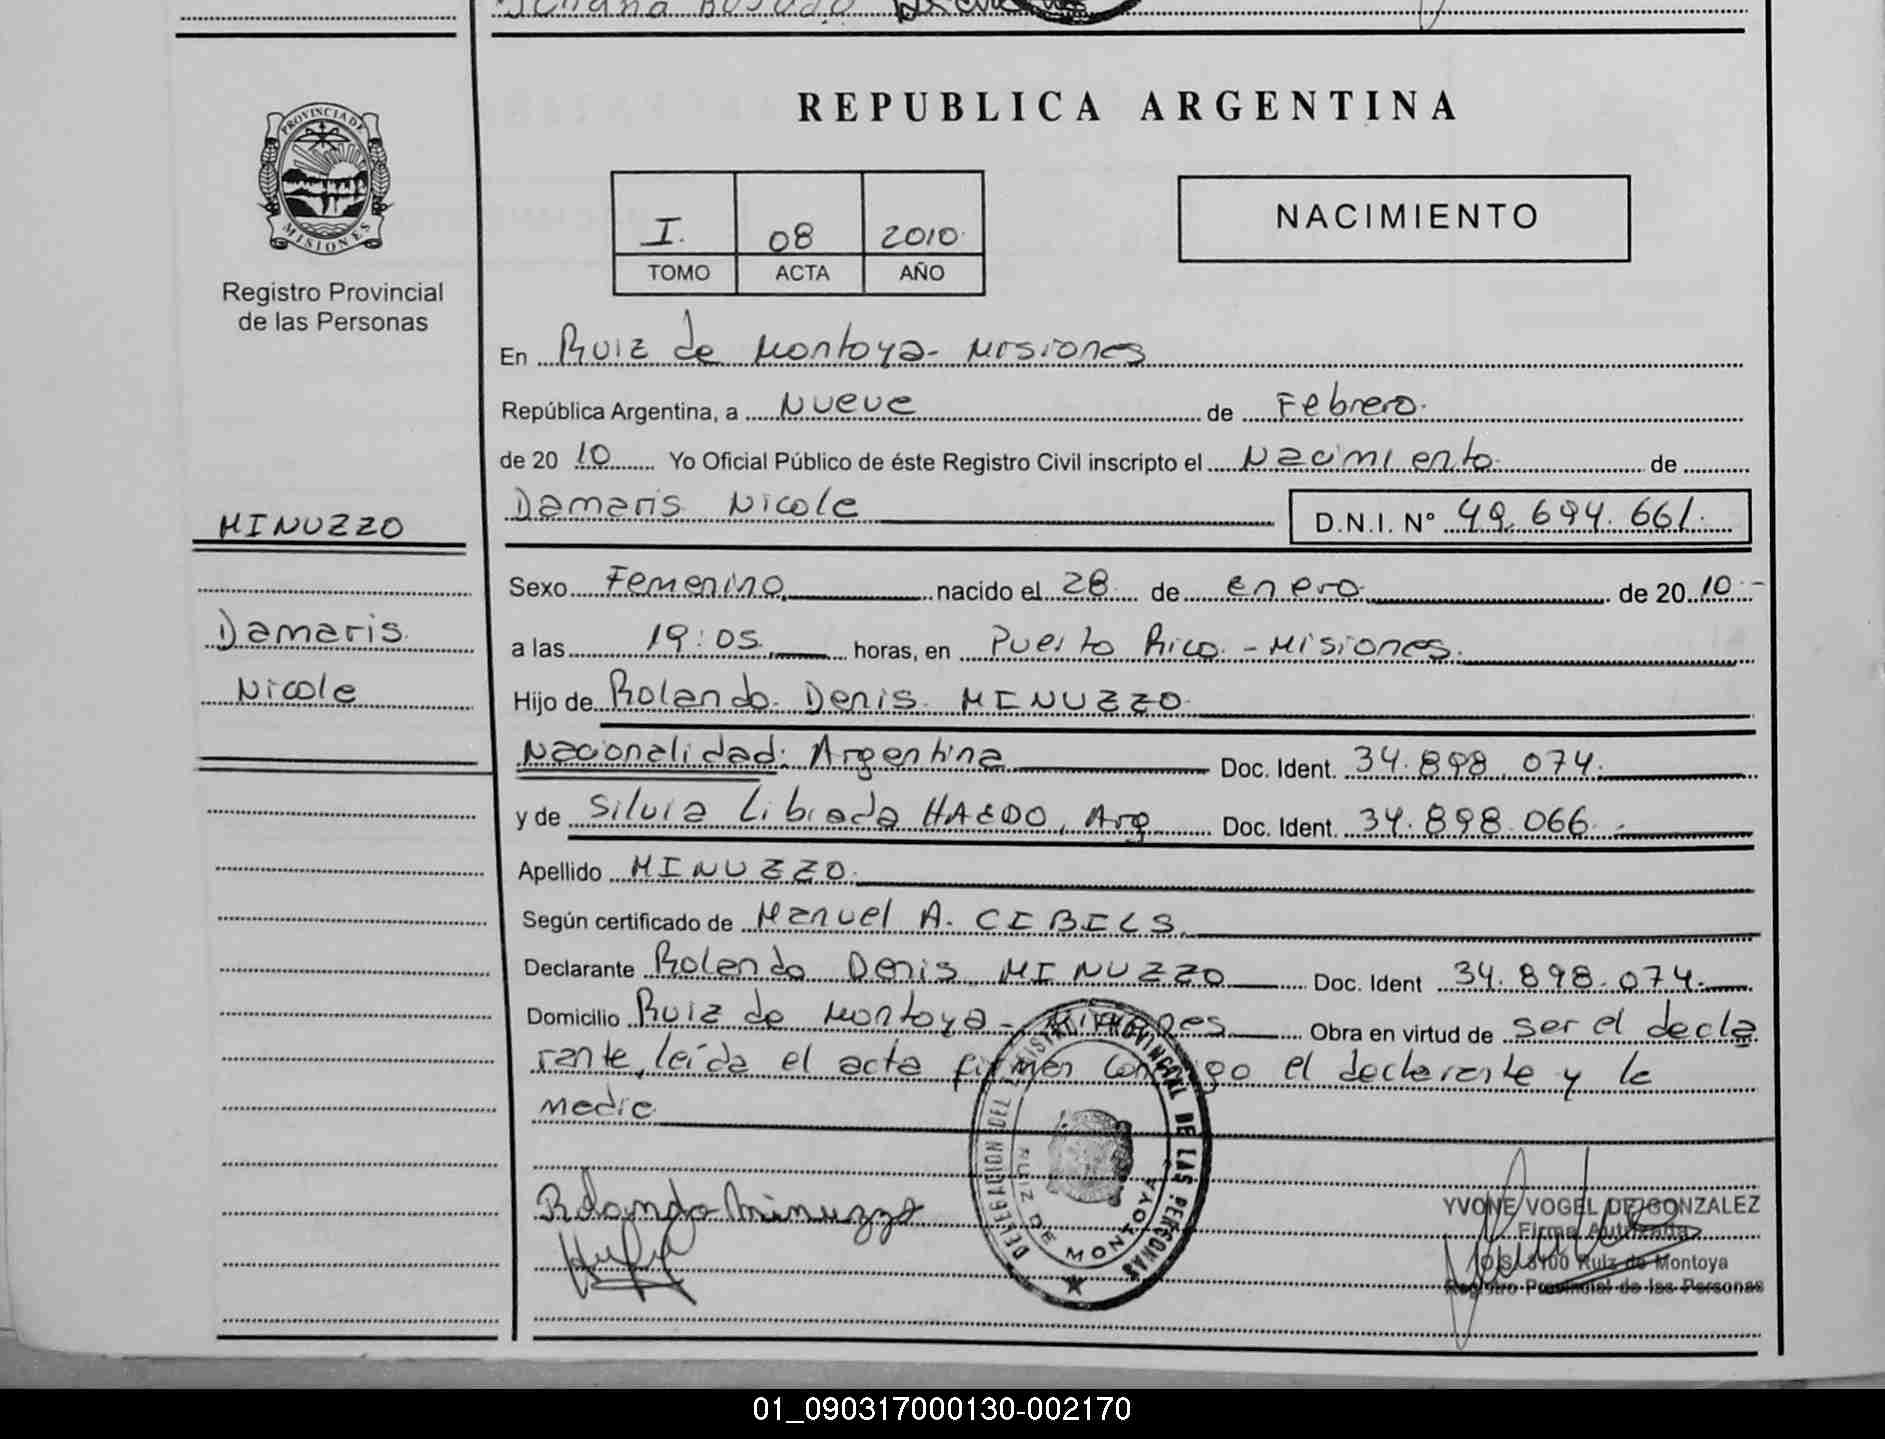 REPUBLICA ARGENTINA
PROVINCIA DE
MISIONES
Registro Provincial
de las Personas
I. 08 2010
TOMO ACTA AÑO
NACIMIENTO
En Ruiz de Montoya - Misiones
República Argentina, a Nueve de Febrero.
de 20 10 Yo Oficial Público de éste Registro Civil inscripto el Nacimiento de
Damaris Nicole D.N.I. N° 49.694.661.
MINUZZO
Damaris
Nicole
Sexo Femenino nacido el 28 de enero de 20 10.-
a las 19:05 horas, en Puerto Rico - Misiones.
Hijo de Rolando Denis MINUZZO
Nacionalidad: Argentina Doc. Ident. 34.898.074.
y de Silvia Librada HAEDO, Arg Doc. Ident. 34.898.066.-
Apellido MINUZZO.
Según certificado de Manuel A. CIBILS
Declarante Rolando Denis MINUZZO Doc. Ident 34.898.074.
Domicilio Ruiz de Montoya - Misiones Obra en virtud de ser el decla
rante, leída el acta firman conmigo el declarante y la
madre
Rolando Minuzzo
DELEGACION DEL REGISTRO PROVINCIAL DE LAS PERSONAS
RUIZ DE MONTOYA
YVONE VOGEL DE GONZALEZ
Firma Autorizada
Ruiz de Montoya
Registro Provincial de las Personas
01_090317000130-002170